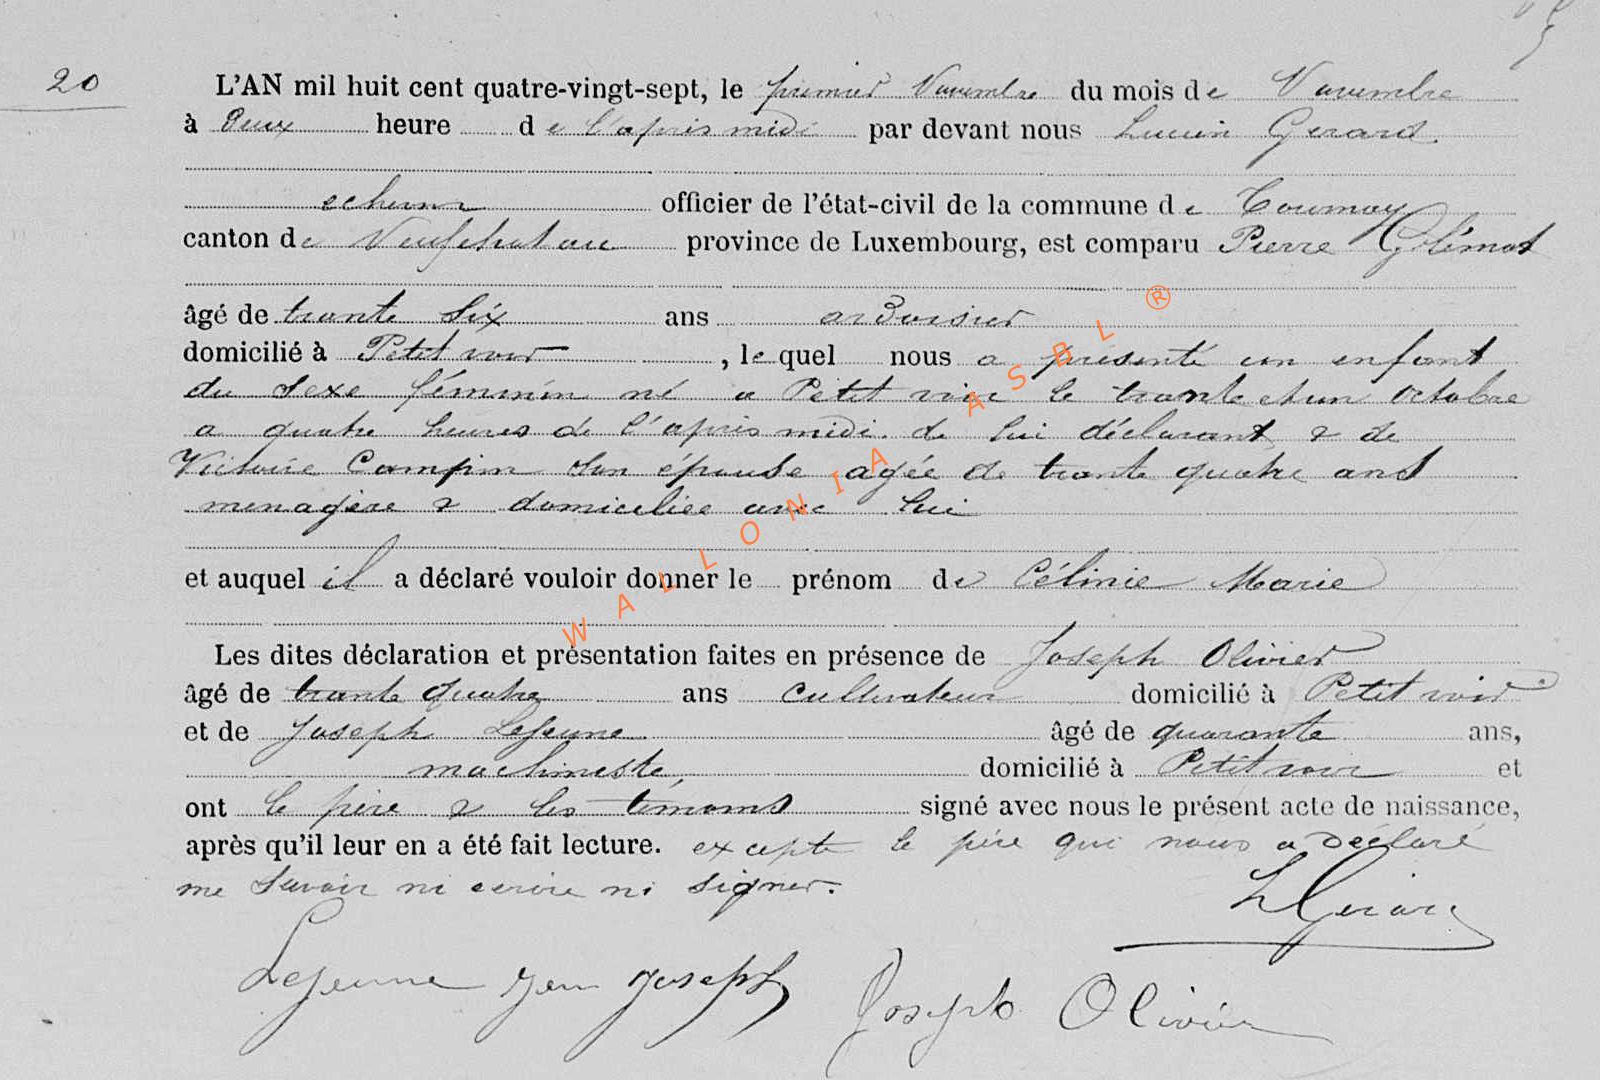 20 L'AN mil huit cent quatre-vingt-sept, le premier Novembre du mois de Novembre
à Deux heure de l'apres midi par devant nous Lucien Gerard
echevin officier de l'état-civil de la commune de Tournay
canton de Neufchateau province de Luxembourg, est comparu Pierre Glémot
âgé de trente Six ans ardoisier
domicilié à Petit voir, le quel nous a présenté un enfant
du Sexe féminin né a Petit voir le trente et un Octobre
a quatre heures de l'apris midi. de lui déclarant & de
Victoire Campin son épouse agée de trente quatre ans
menagère & domiciliée avec lui
et auquel il a déclaré vouloir donner le prénom de Célinie Marie
Les dites déclaration et présentation faites en présence de Joseph Olivier
âgé de trente quatre ans cultivateur domicilié à Petit voir
et de Joseph Lejeune âgé de quarante ans,
machineste, domicilié à Petit voir et
ont le père & les témoins signé avec nous le présent acte de naissance,
après qu'il leur en a été fait lecture. excepte le père qui nous a Déclaré
ne Savoir ni ecrire ni signer.
L Gerard
Lejeune Jean Joseph Joseph Olivier
WALLONIA ASBL ®